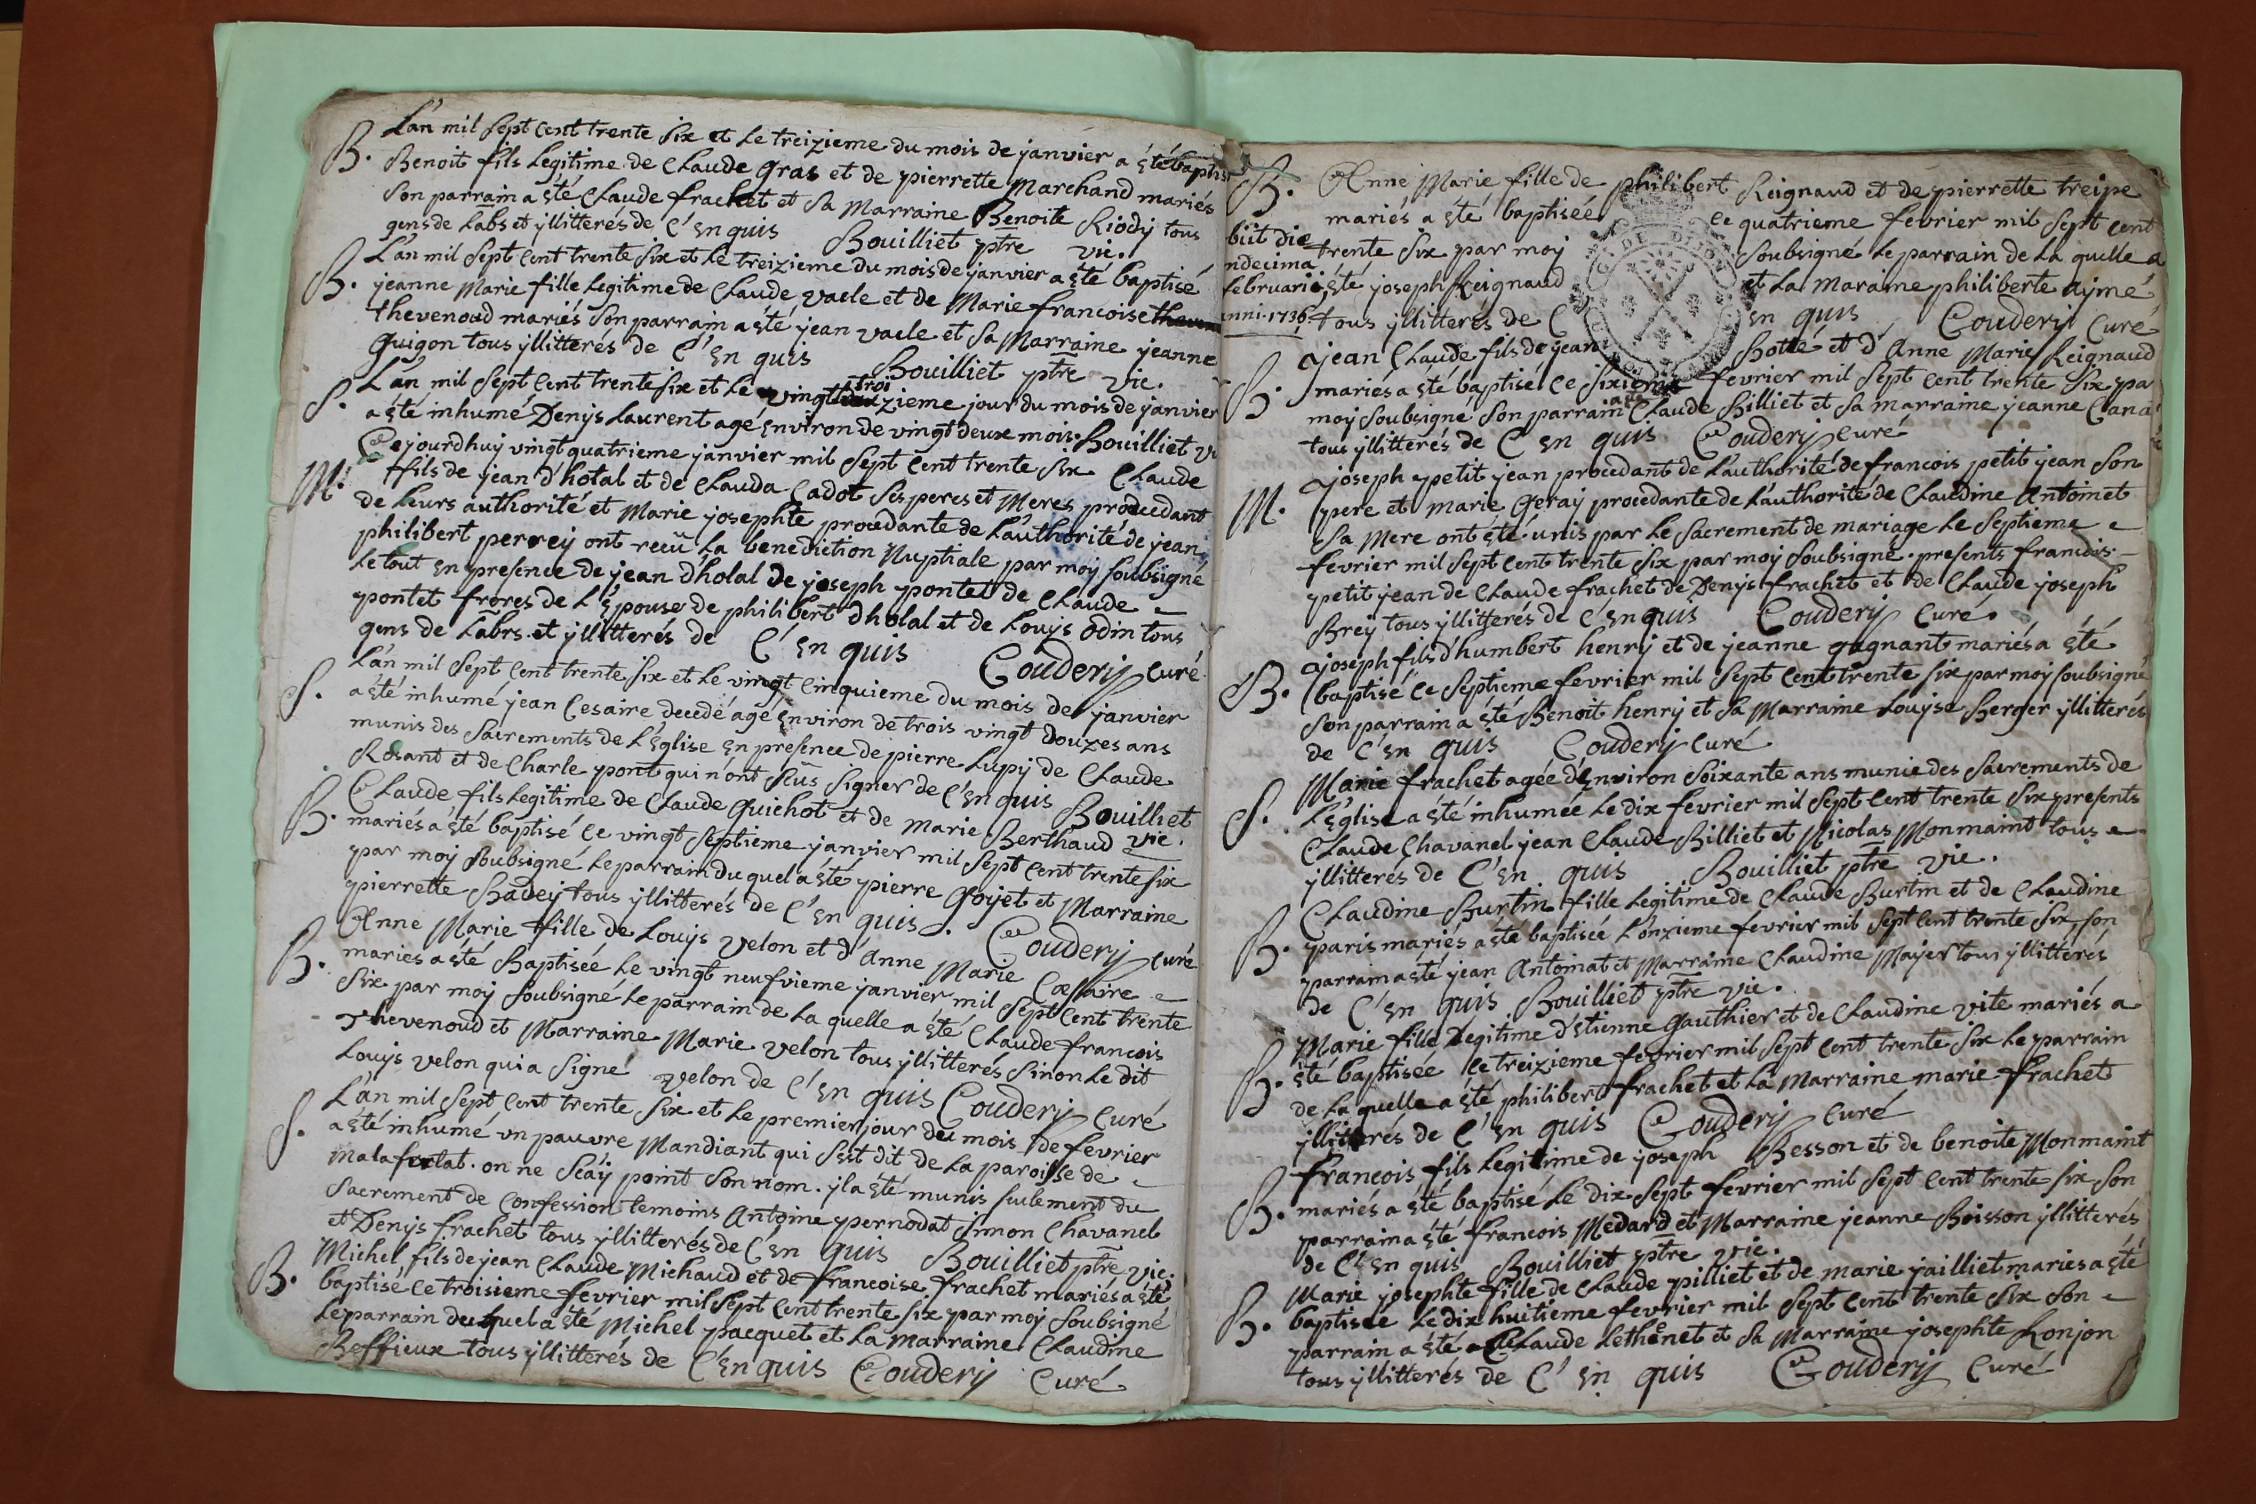 L'an mil sept cent trente six et le treizieme du mois de janvier a été baptisé
B. Benoit fils legitime de Claude Gras et de pierrette Marchand mariés
son parrain a été Claude frachet et sa Marraine Benoite Riody tous
gens de Labs et yllitterés de C' en quis Bouilliet ptre vic.
L'an mil sept cent trente six et le treizieme du mois de janvier a été baptisé
B. jeanne Marie fille legitime de Claude vacle et de Marie francoise
thevenoud mariés son parrain a été jean vacle et sa Marraine jeanne
Guigon tous yllitterés de C' en quis Bouilliet ptre vic.
L'an mil sept cent trente six et le vingt troizieme jour du mois de janvier
S. a été inhumé Denys Laurent agé environ de vingt deux mois. Bouilliet v
Cejourdhuy vingt quatrieme janvier mil sept cent trente six Claude
M. ffils de jean d'hotal et de Clauda Cadot ses peres et Meres procedant
de leurs authorité et Marie josephte procedante de L'authorité de jean
philibert perrey ont reçü la benediction Nuptiale par moy soubsigné
Le tout en presence de jean dholal de joseph pontet de Claude
pontet freres de L'épouse de philibert dholal et de Louys odin tous
gens de Labrs et yllitterés de C' en quis Couderij curé
L'an mil sept cent trente six et le vingt cinquieme du mois de janvier
S. a été inhumé jean Cesaire decedé agé environ de trois vingt douzes ans
munis des sacrements de L'église en presence de pierre Lupy de Claude
Rosant et de Charle pont qui n'ont sçus signer de C'en quis Bouilliet
Claude fils legitime de Claude Guichot et de Marie Berthaud vic.
B. mariés a été baptisé ce vingt septieme janvier mil sept cent trente six
par moy soubsigné le parrain du quel a été pierre Goyet et Marraine
pierrette Badey tous yllitterés de C' en quis. Couderij curé
Anne Marie fille de Louys Velon et d'Anne Marie Cæsaire
B. mariés a été Baptisée le vingt neufvieme janvier mil sept cent trente
six par moy soubsigné le parrain de la quelle a été Claude francois
Thevenoud et Marraine Marie velon tous yllitterés sinon le dit
Louys velon qui a signé velon de C' en quis Couderij curé
L'an mil sept cent trente six et le premier jour du mois de fevrier
S. a été inhumé vn pauvre Mandiant qui s'est dit de la paroisse de
Malafretat. on ne sçay point son nom. yl a été munis seulement du
sacrement de Confession temoins Antoine pernodat Simon Chavanel
et Denys frachet tous yllitterés de C' en quis Bouilliet ptre vic.
Michel fils de jean Claude Michaud et de francoise frachet mariés a été
B. baptisé ce troisieme fevrier mil sept cent trente six par moy soubsigné
Le parrain du quel a été Michel pacquet et la marraine Claudine
Beffieux tous yllitterés de C' en quis Couderij Curé
B. Anne Marie fille de philibert Reignaud et de pierrette treipe
mariés a été baptisée ce quatrieme fevrier mil sept cent
trente six par moy soubsigné le parrain de la quelle a
été joseph Reignaud et la maraine philiberte aymé
tous yllitterés de C' en quis Couderij Curé
büt die
ndecima
februarii
nni. 1736.
jean Claude fils de jean Botté et d'Anne Marie Reignaud
B. mariés a été baptisé ce sixieme fevrier mil sept cent trente six par
moy soubsigné son parrain Claude Billiet et sa marraine jeanne
tous yllitterés de C' en quis Couderij curé
joseph petit jean procedant de L'authorité de francois petit jean son
M. pere et marie Geray procedante de L'authorité de Claudine Antoinet
sa Mere ont été unis par le sacrement de mariage le septieme
fevrier mil sept cent trente six par moy soubsigné. presents francois
petit jean de Claude frachet de Denys frachet et de Claude joseph
Brey tous yllitterés de C' en quis Couderij curé.
joseph fils d'humbert henry et de jeanne gagnant mariés a été
B. baptisé ce septieme fevrier mil sept cent trente six par moy soubsigné
son parrain a été Benoit henry et sa Marraine Louyse Berger yllitterés
de C' en quis Couderij curé
Marie frachet agée d'Environ soixante ans munie des sacrements de
S. L'église a été inhumée le dix fevrier mil sept cent trente six presents
Claude Chavanel jean Claude Billiet et Nicolas Monmaint tous
yllitterés de C' en quis Bouilliet ptre vic.
Claudine Burtin fille legitime de Claude Burtin et de Claudine
B. paris mariés a été baptisée L'onzieme fevrier mil sept cent trente six, son
parrain a été jean Antoinat et Marraine Claudine Mayer tous yllitterés
de C' en quis Bouilliet ptre vic.
Marie fille Legitime d'étienne Gauthier et de Claudine vite mariés a
B. été baptisée le treizieme fevrier mil sept cent trente six le parrain
de la quelle a été philibert frachet et la Marraine marie frachet
yllitterés de C' en quis Couderij curé
francois fils legitime de joseph Besson et de benoite Monmaint
B. mariés a été baptisé le dix sept fevrier mil sept cent trente six son
parrain a été francois Medard et Marraine jeanne Boisson yllitterés
de C' en quis Bouilliet ptre vic.
Marie josephte fille de Claude pilliet et de marie jailliet mariés a été
B. baptisée le dix huitieme fevrier mil sept cent trente six son
parrain a été Claude Lethenet et sa Marraine josephte Lonjon
tous yllitterés de C' en quis Couderij Curé